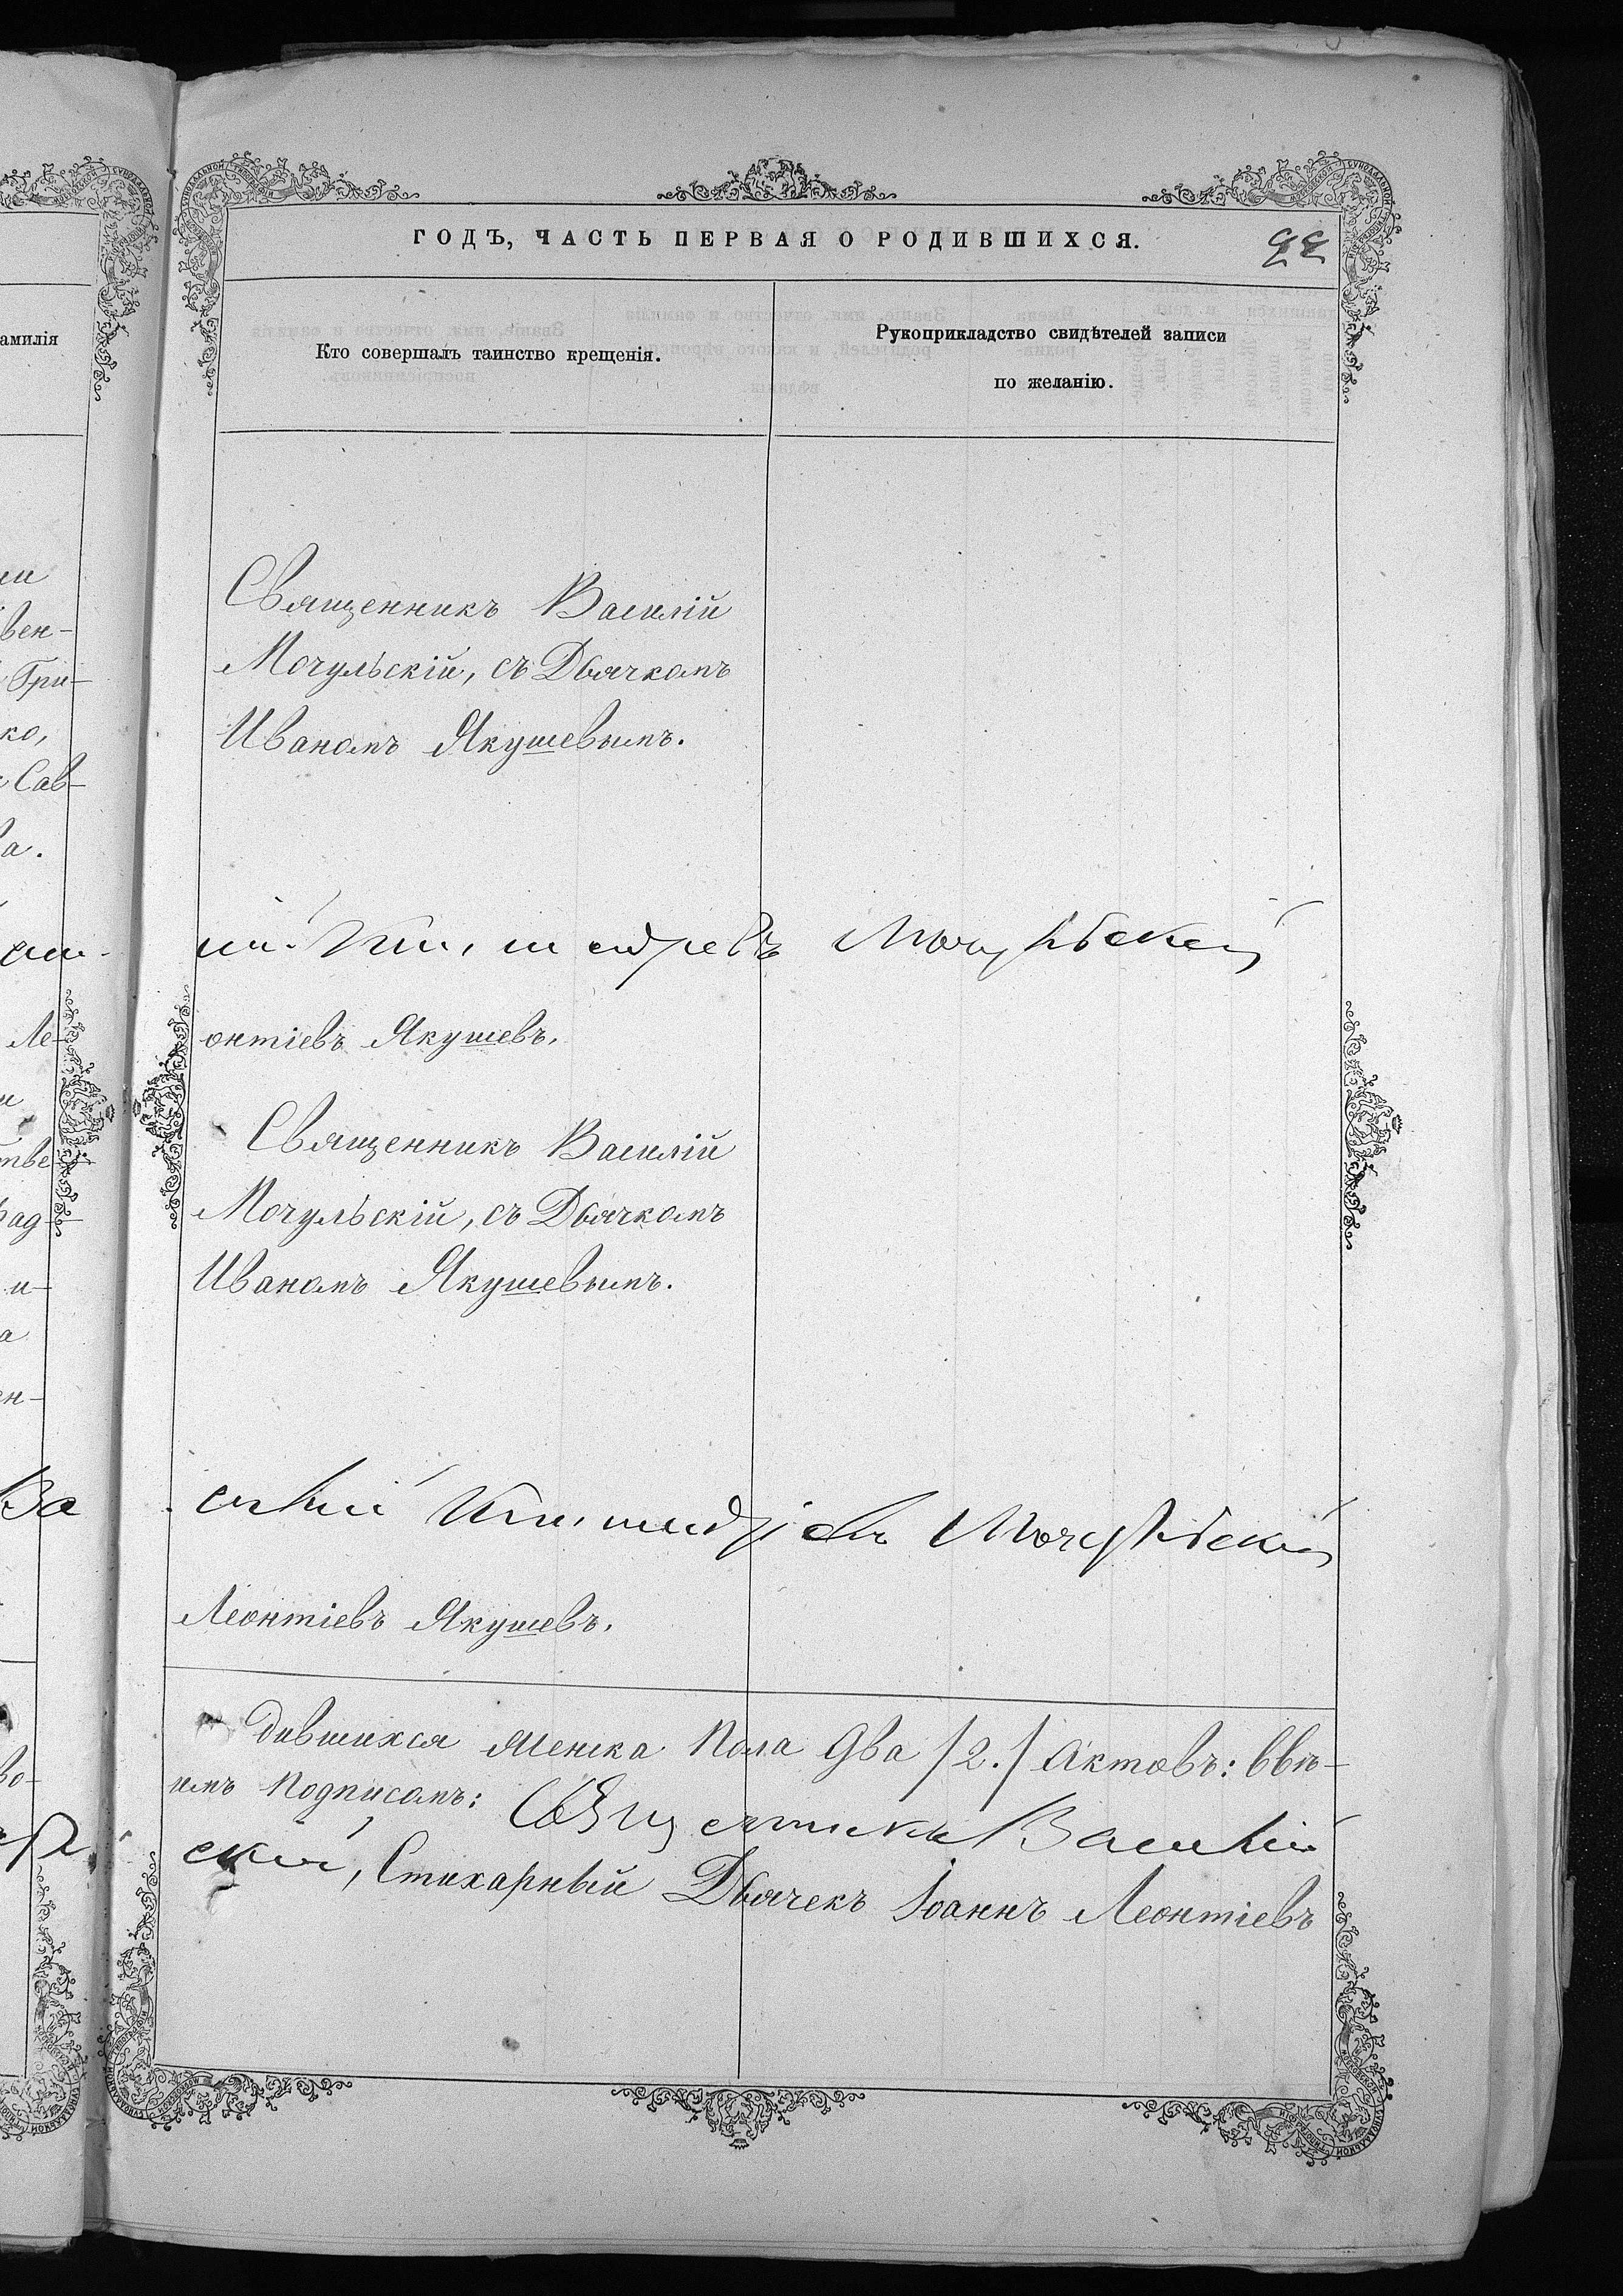 ГОДЪ, ЧАСТЬ ПЕРВАЯ О РОДИВШИХСЯ.
амилія
Кто совершалъ таинство крещенія.
Рукоприкладство свидѣтелей записи
по желанію.
вен-
Гри-
ко,
Сав-
ва.
Священникъ Василій
Мочульскій, съ Дьячкомъ
Иваномъ Якушевымъ.
Мочульскій
Ле-
онтіевъ Якушевъ.
Священникъ Василій
Мочульскій, съ Дьячкомъ
Иваномъ Якушевымъ.
Ва
силій Мочульскій
Леонтіевъ Якушевъ.
дившихся Женска Пола Два /2./ Актовъ: ввѣ-
имъ Подписомъ: Священникъ Василій
скій, Стихарный Дьячекъ Іоаннъ Леонтіевъ